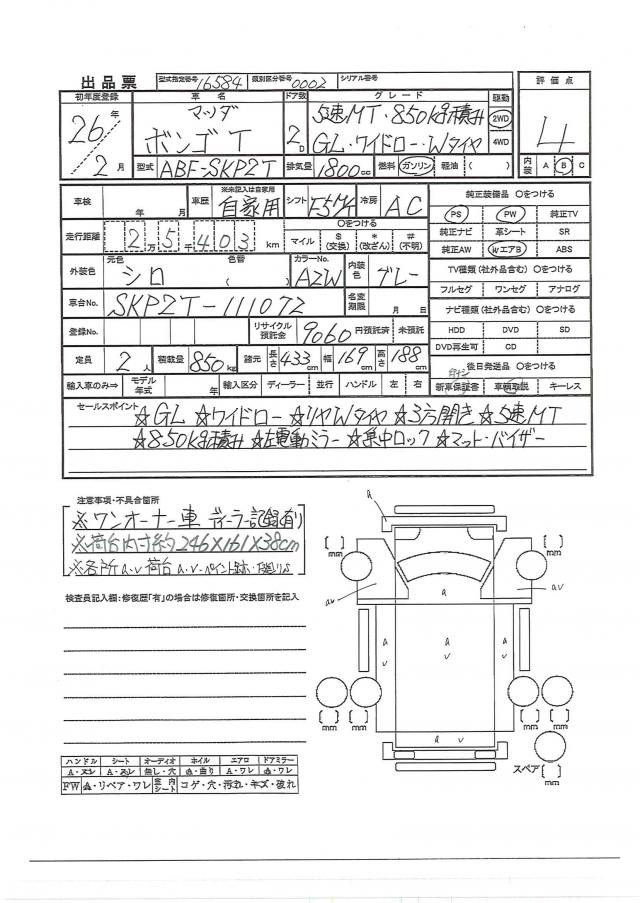 出品票 型式指定番号 16584 類別区分番号 0002 シリアル番号
初年度登録 車名 ドア数 グレード 駆動 評価点
26年 マツダ 5速MT・850kg積み 2WD
2月 ボンゴT 2D GL・ワイドロー・Wタイヤ 4WD 4
型式 ABF-SKP2T 排気量 1800cc 燃料 ガソリン・軽油・( ) 内装 A B C
車検 年 月 車歴 ※未記入は自家用 自家用 シフト F5MT 冷房 AC 純正装備品 〇をつける
PS PW 純正TV
走行距離 2万5千403km 〇をつける マイル $(交換) *(改ざん) #(不明) 純正ナビ 革シート SR
純正AW WエアB ABS
外装色 元色 シロ ( 色替 ) カラーNo. A2W 内装色 グレー TV種類(社外品含む) 〇をつける
フルセグ ワンセグ アナログ
車台No. SKP2T-111072 名変期限 月 日 ナビ種類(社外品含む) 〇をつける
登録No. リサイクル預託金 9060円預託済 未預託 HDD DVD SD
DVD再生可 CD
定員 2人 積載量 850kg 諸元 長さ 433cm 幅 169cm 高さ 188cm 後日発送品 〇をつける
輸入車のみ⇒ モデル年式 年 輸入区分 ディーラー 並行 ハンドル 左 右 新車保証書 車輌取説 キーレス
セールスポイント ☆GL ☆ワイドロー ☆リヤWタイヤ ☆3方開き ☆5速MT
☆850kg積み ☆左電動ミラー ☆集中ロック ☆マット・バイザー
注意事項・不具合箇所
※ワンオーナー車 ディーラー記録有り
※荷台内寸約246×161×38cm
※各所a.v荷台a.v・ペイント跡・
検査員記入欄:修復歴「有」の場合は修復箇所・交換箇所を記入
a
[ ]mm [ ]mm
av a a v
a v a v a v
[ ]mm [ ]mm [ ]mm [ ]mm
a v
スペア[ ]mm
ハンドル シート オーディオ ホイル エアロ ドアミラー
A・スレ A・スレ 無し・穴 A・曲り A・ワレ A・ワレ
FW A・リペア・ワレ 室内シート コゲ・穴・汚れ・キズ・破れ